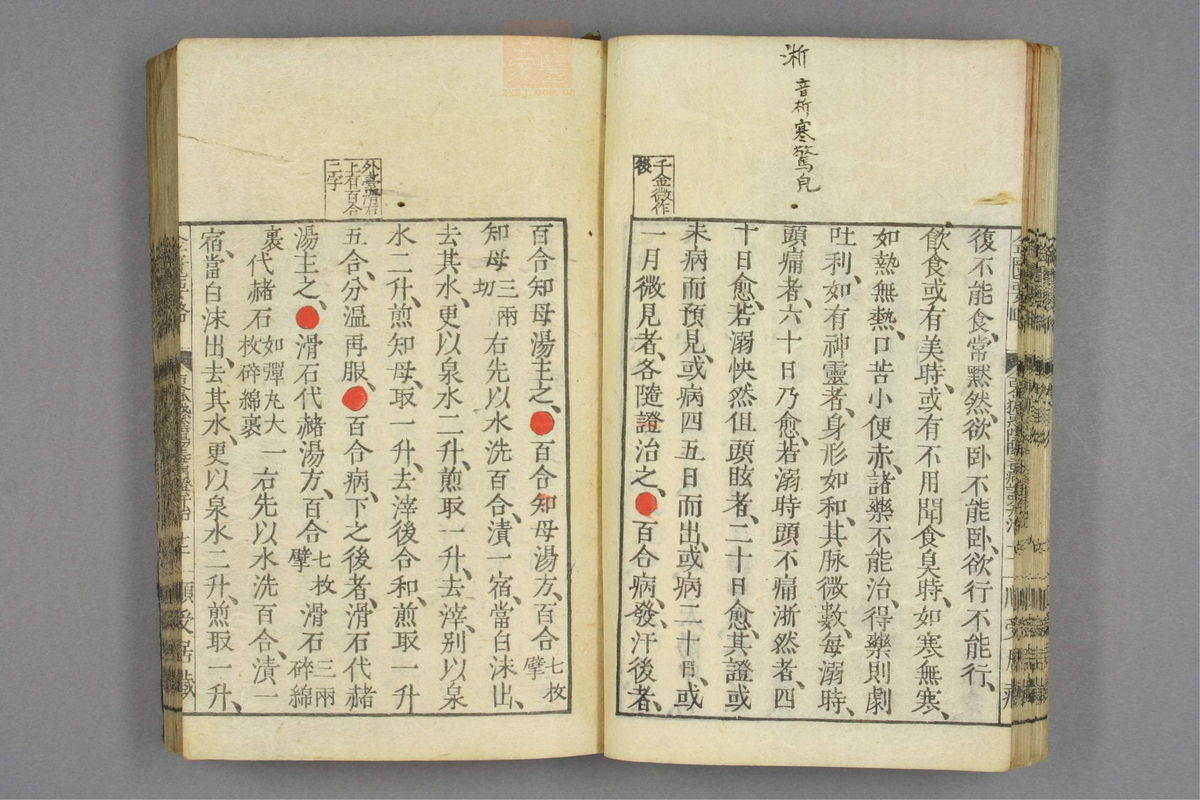 淅 音析寒驚皃
千金微作
後
復不能食、常黙然、欲卧不能卧、欲行不能行、
飲食或有美時、或有不用聞食臭時、如寒無寒、
如熱無熱、口苦小便赤、諸藥不能治、得藥則劇
吐利、如有神靈者、身形如和、其脉微數、每溺時、
頭痛者、六十日乃愈、若溺時頭不痛淅然者、四
十日愈、若溺快然但頭眩者、二十日愈、其證或
未病而預見、或病四五日而出、或病二十日、或
一月微見者、各隨證治之、百合病、發汗後者、
外臺滑石
上有百合
三字
百合知母湯主之、百合知母湯方、百合七枚擘
知母三兩切右先以水洗百合、漬一宿、當白沫出、
去其水、更以泉水二升、煎取一升、去滓、别以泉
水二升、煎知母、取一升、去滓後合和、煎取一升
五合、分温再服、百合病、下之後者、滑石代赭
湯主之、滑石代赭湯方、百合七枚擘滑石三兩碎綿
裹代赭石如彈丸大一枚碎綿裹右先以水洗百合、漬一
宿、當白沫出、去其水、更以泉水二升、煎取一升、